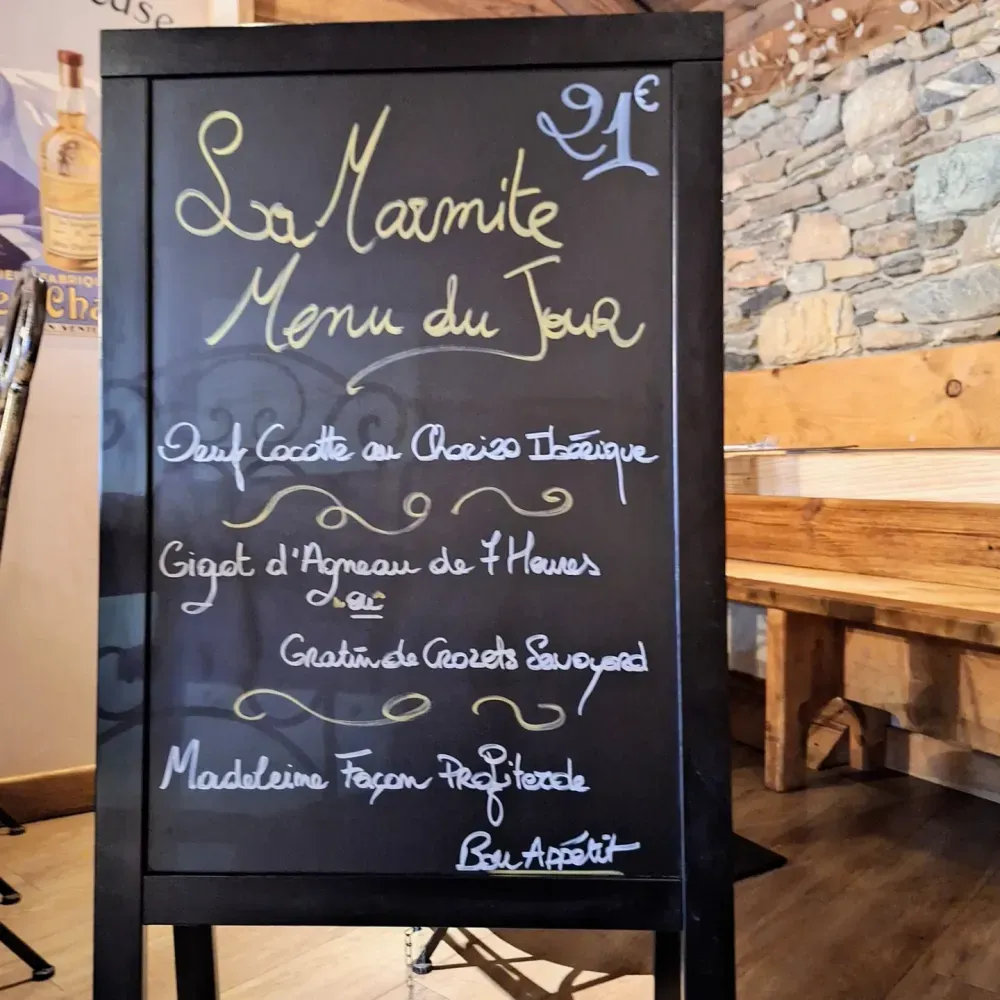 21€
La Marmite
Menu du Jour
Oeuf Cocotte au Chorizo Ibérique
Gigot d'Agneau de 7 Heures
"ou"
Gratin de Crozets Savoyard
Madeleine Façon Profiterole
Bon Appétit